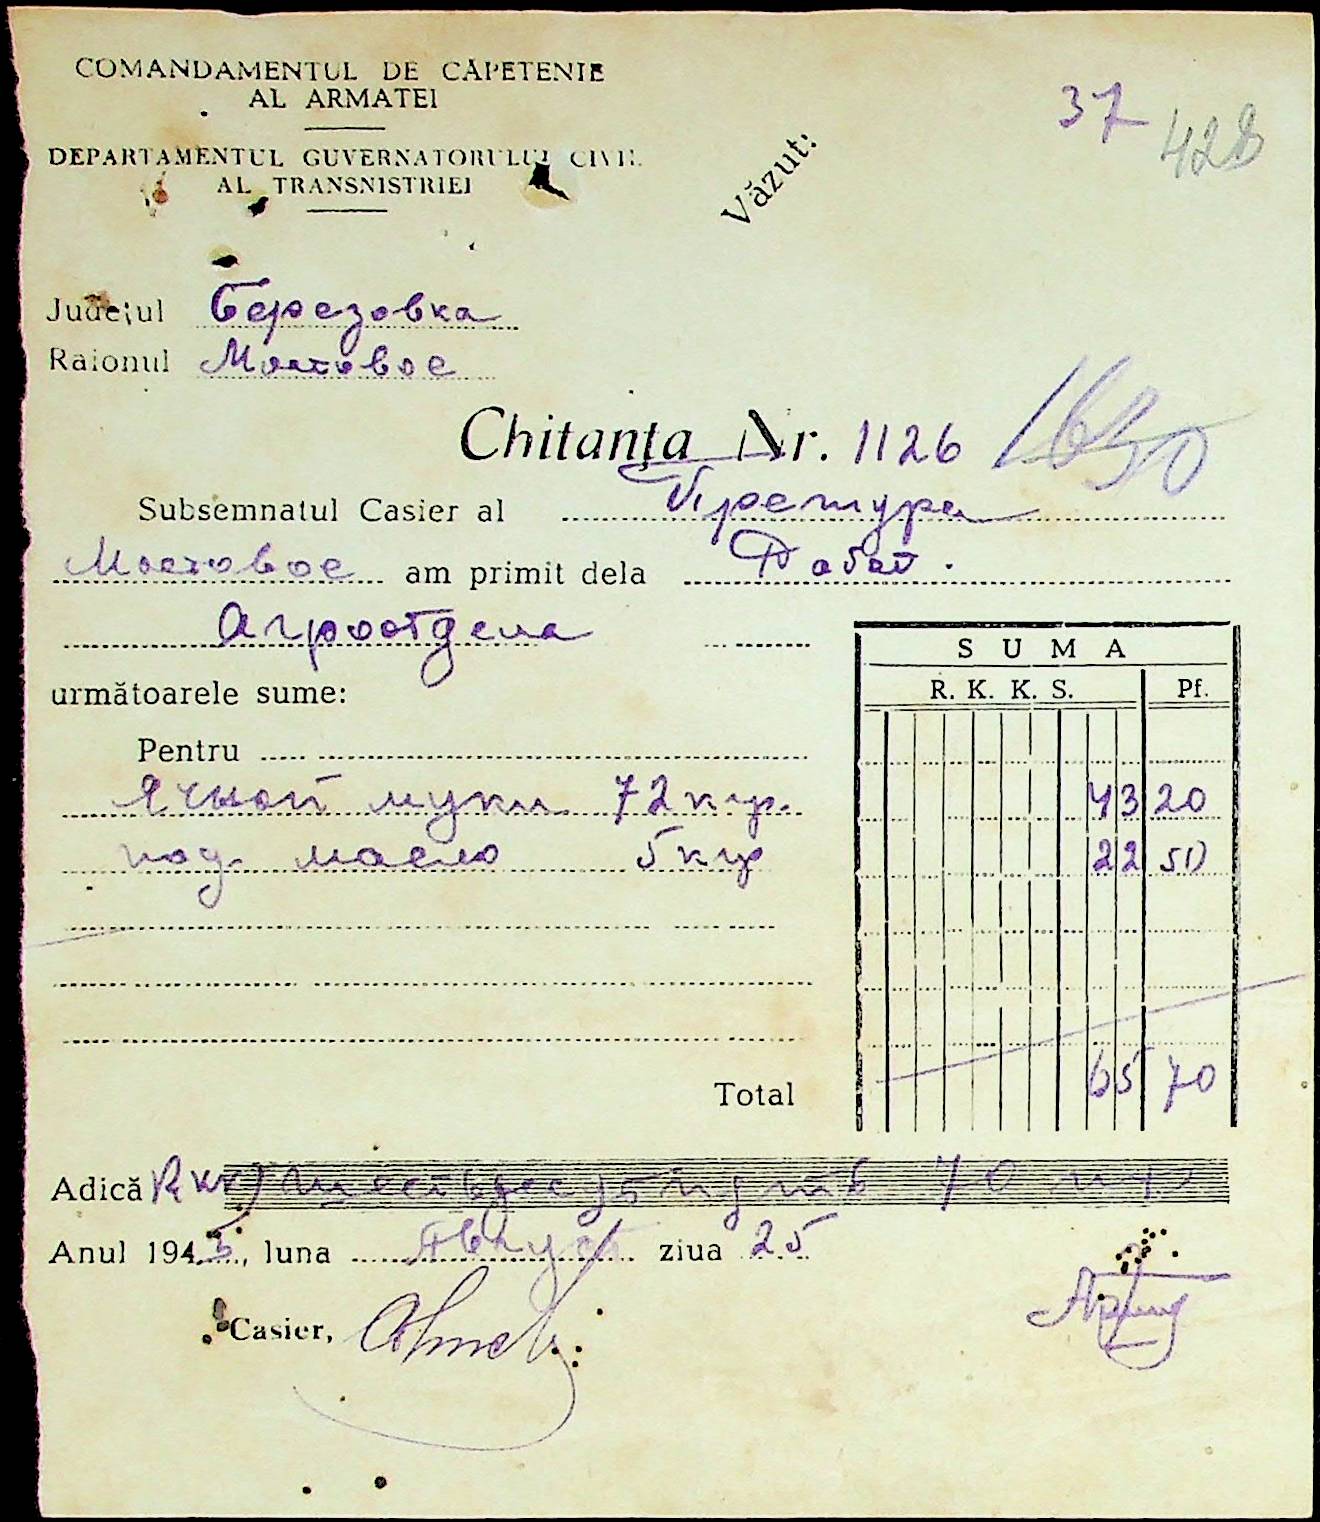 COMANDAMENTUL DE CĂPETENIE
AL ARMATEI
DEPARTAMENTUL GUVERNATORULUI CIVIL
AL TRANSNISTRIEI
Văzut:
37
428
Județul Березовка
Raionul Мостовое
Chitanța Nr. 1126 1630
Subsemnatul Casier al Претура
Мостовое am primit dela Рабат.
Агроотдела
următoarele sume:
SUMA
R. K. K. S. Pf.
Pentru
Ячной муки 72 кгр. 43 20
под. масло 5 кгр 22 50
Total 65 70
Adică Шестьдесят пять 70
Anul 1943, luna Август ziua 25
Casier,